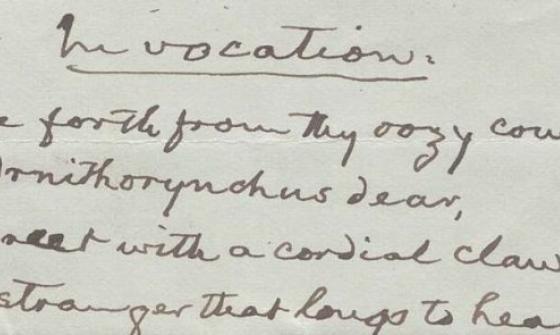 Invocation.
e forth from thy oozy cou
Ornithorynchus dear,
reet with a cordial claw
stranger that longs to hea